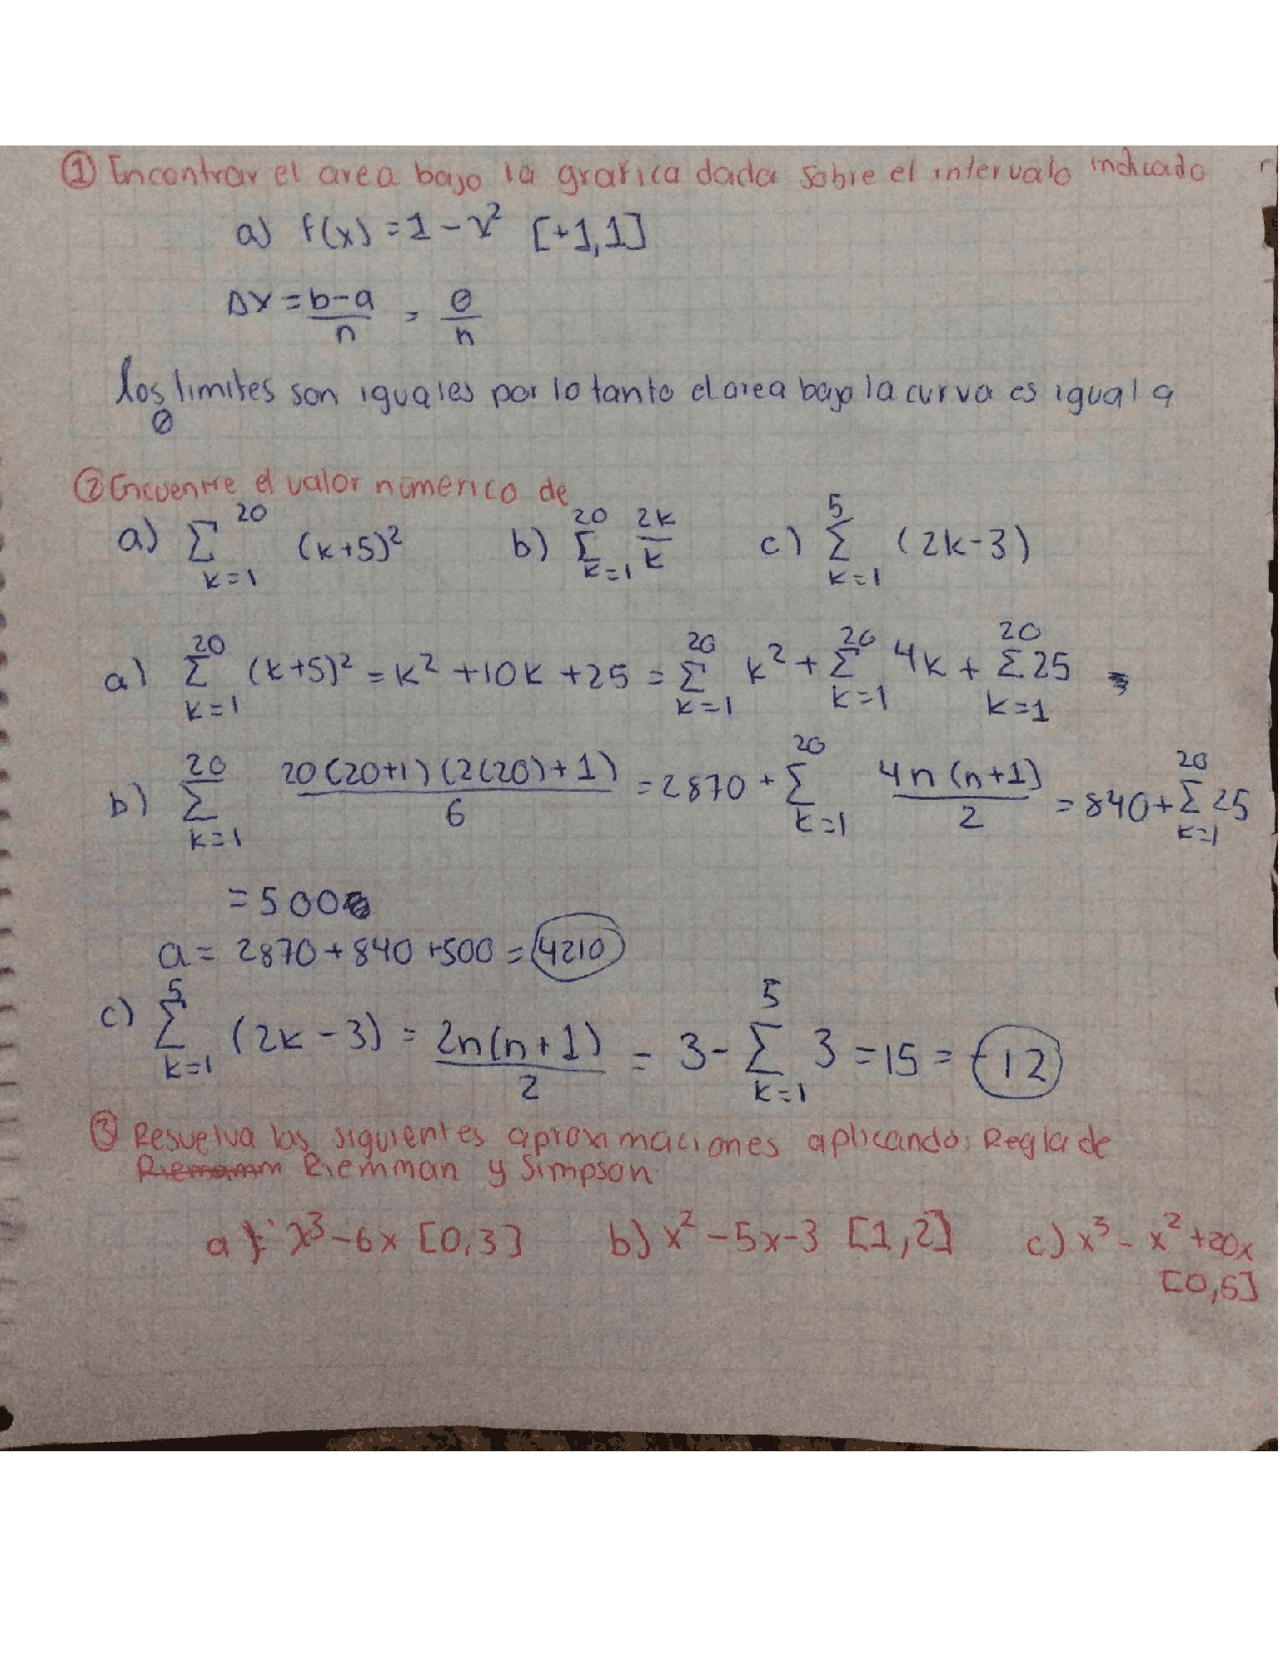 ① Encontrar el area bajo la grafica dada sobre el intervalo indicado
a) f(x) = 1 - x² [+1,1]
Δx = b-a/n = 0/n
los limites son iguales por lo tanto el area bajo la curva es igual a
0
② Encuentre el valor numerico de
a) 20 Σ k=1 (k+5)² b) 20 Σ k=1 2k/k c) 5 Σ k=1 (2k-3)
a) 20 Σ k=1 (k+5)² = k² + 10k + 25 = 20 Σ k=1 k² + 20 Σ k=1 4k + 20 Σ k=1 25
b) 20 Σ k=1 20(20+1)(2(20)+1)/6 = 2870 + 20 Σ k=1 4n(n+1)/2 = 840 + 20 Σ k=1 25
= 500
a = 2870 + 840 + 500 = 4210
c) 5 Σ k=1 (2k-3) = 2n(n+1)/2 = 3 - 5 Σ k=1 3 = 15 = -12
③ Resuelva las siguientes aproximaciones aplicando: Regla de
Riemman y Simpson
a) x³-6x [0,3] b) x²-5x-3 [1,2] c) x³-x²+20x
[0,6]